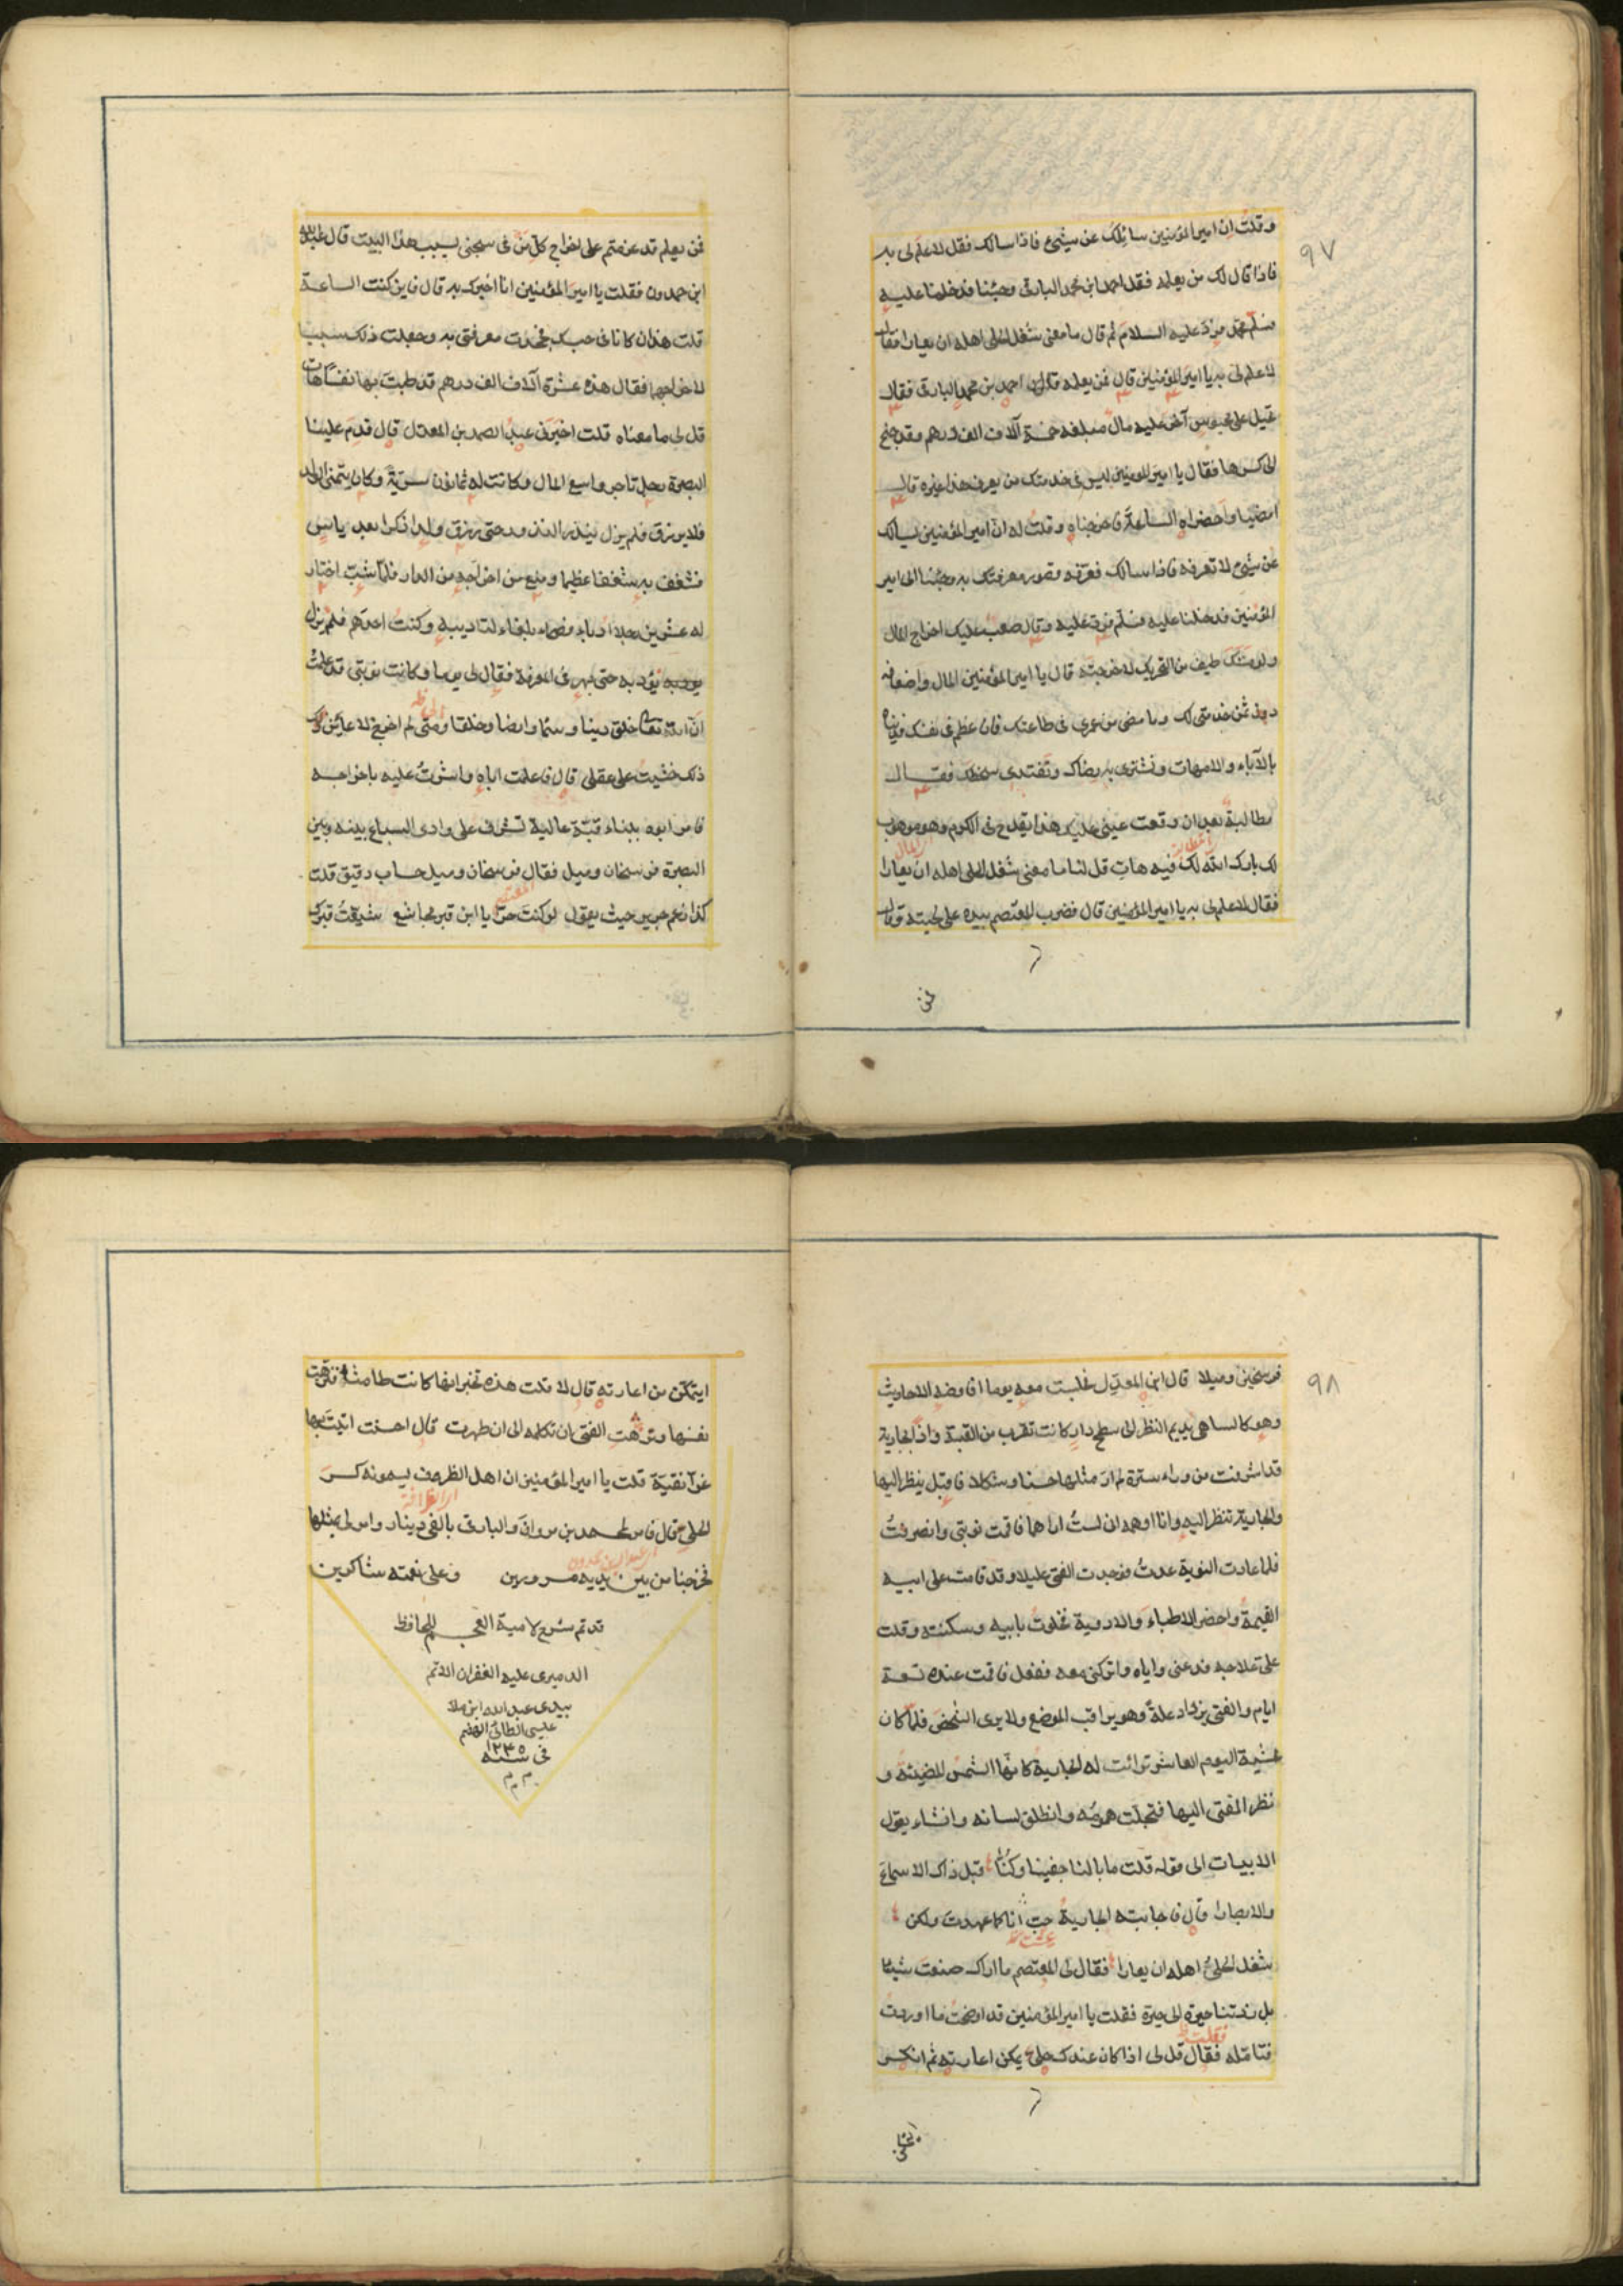 ٩٧
وقلت ان امير المؤمنين سائلك عن شيئ فاذا سالك فقل لا علم لى به
فاذا قال لك من يعلمه فقل احمد ابن محمد البارقى وجئنا فدخلنا عليه
فسلم فرد عليه السلام ثم قال ما معنى شغل الحلى اهله ان يعارا فقال
لا علم لى به يا امير المؤمنين قال فمن يعلمه قال احمد بن محمد البارقى فقال
على محبوس آخر عليه مال مبلغه خمسة آلاف الف درهم وقد جنح
الى كسرها فقال يا امير المومنين ليس فى خدمتك من يعرف هذا غيره قال
امضيا واحضراه الساعة فاخرجناه وقلت له ان امير المؤمنين يسالك
عن شيئ لا تعرفه فاذا سالك فعرّفه قصور معرفتك به وجئنا الى امير
المؤمنين فدخلنا عليه فسلم فرد عليه وقال صعب عليك اخراج المال
ولو مسّك طيف من التحريك لاخرجته قال يا امير المؤمنين المال واضعافه
دون ثمن خدمتى لك وما مضى من عمرى فى طاعتك فان عظم فى نفسك فديناه
بالآباء والامهات ونشترى به رضاك ونفتدى سخطك فقال
مطالبة بعد ان وقعت عينى عليك هذا يقدح فى الكرم وهو موهوب
لك بارك الله لك فيه هات قل لنا ما معنى شغل الحلى اهله ان يعارا
فقال لا علم لى به يا امير المؤمنين قال فضرب المعتصم بيده على لحيته وقال
فمن
فمن يعلم قد عزمتم على اخراج كل من فى سجنى بسبب هذا البيت قال عبدالله
ابن حمدون فقلت يا امير المؤمنين انا اخبرك به قال فاين كنت الساعة
قلت هذان كانا فى حبسك فجحدت معرفتى به وجعلت ذلك سببا
لاخراجهما فقال هذه عشرة آلاف الف درهم قد طبت بها نفسًا هات
قل لى ما معناه قلت اخبرنى عبد الصمد بن المعدل قال قدم علينا
البصرة رجل تاجر واسع المال وكانت له ثمانون سريّة وكان يتمنى الولد
فلا يرزق فلم يزل ينذر النذور حتى رزق ولدا ذكرا بعد ياس
فشغف به شغفا عظيما ومنع من اخراجه من الدار فلمّا شبّ اختار
له عشرين رجلا ادباء فصحاء بلغاء لتاديبه وكنت احدهم فلم يزل
يؤدبه حتى بهر فى المعرفة فقال لى يوما وكانت نوبتى قد علمت
انّ الله تعالى خلق دينا وسما وارضا وخلقا ومتى لم اخرج لاعاين
ذلك خشيت على عقلى قال فاعلمت اباه واشرت عليه باخراجه
فامر ابوه ببناء قبّة عالية تشرف على وادى السباع بينه وبين
البصرة فرسخان وميل فقال فرسخان وميل حساب دقيق قلت
كذا زعم جرير حيث يقول لو كنت حرّا يا ابن قين مجاشع شيعت
٩٨
فرسخين وميلا قال ابن المعدل فجلست معه يوما افاوضه الاحاديث
وهو كالساهى يديم النظر الى سطح دار كانت تقرب من القبة واذا بجارية
قد اشرفت من وراء سترة لم ار مثلها حسنا وشكلا فاقبل ينظر اليها
والجارية تنظر اليه وانا اوهمه ان لست اراهما فاقت نوبتى وانصرفت
فلما عادت النوبة عدت فوجدت الفتى عليلا وقد قامت على ابيه
القيمة واحضر الاطباء والادوية فخلوت بابيه وسكنته وقلت
علىّ علاجه فدعنى واياه واتركنى معه ففعل فاقمت عنده تسعة
ايام والفتى يزداد علة وهو يراقب الموضع ولا يرى الشخص فلمّا كان
عشية اليوم العاشر ترائت له الجارية كانّها الشمس المضيئة و
نظر الفتى اليها فتجلت همومه وانطلق لسانه وانشاء يقول
الابيات الى قوله قلت ما بالنا جفينا وكنّا قبل ذاك الاسماع
والابصارا قال فاجابته الجارية انا كما عهدت ولكن
شغل الحلى اهله ان يعارا فقال لى المعتصم ما اراك صنعت شيئا
بل زدتنا حيرة الى حيرة فقلت يا امير المؤمنين قد اوضحت ما اوردت
فتامّله فقال قل لى اذا كان عندك حلى يمكن اعارته ثم انكسر
ايتمكّن من اعارته قال لا قلت هذه تخبر انها كانت طامثة فنزهت
نفسها ونزهت الفتى ان تكلمه الى ان طهرت قال احسنت اتيت بها
غرآ نقيّة قلت يا امير المؤمنين ان اهل الظرف يسمونه كسر
الحلى قال فامر لمحمد بن مروان والبارقى بالفى دينار وامر لى بمثلها
فخرجنا من بين يديه مسرورين وعلى نعمته شاكرين
قد تم شرح لامية العجم للحافظ
الدميرى عليه الغفران الاتم
بيدى عبد الله ابن ملا
عليسى الطائى
فى سنه ١٢٣٥
م م م